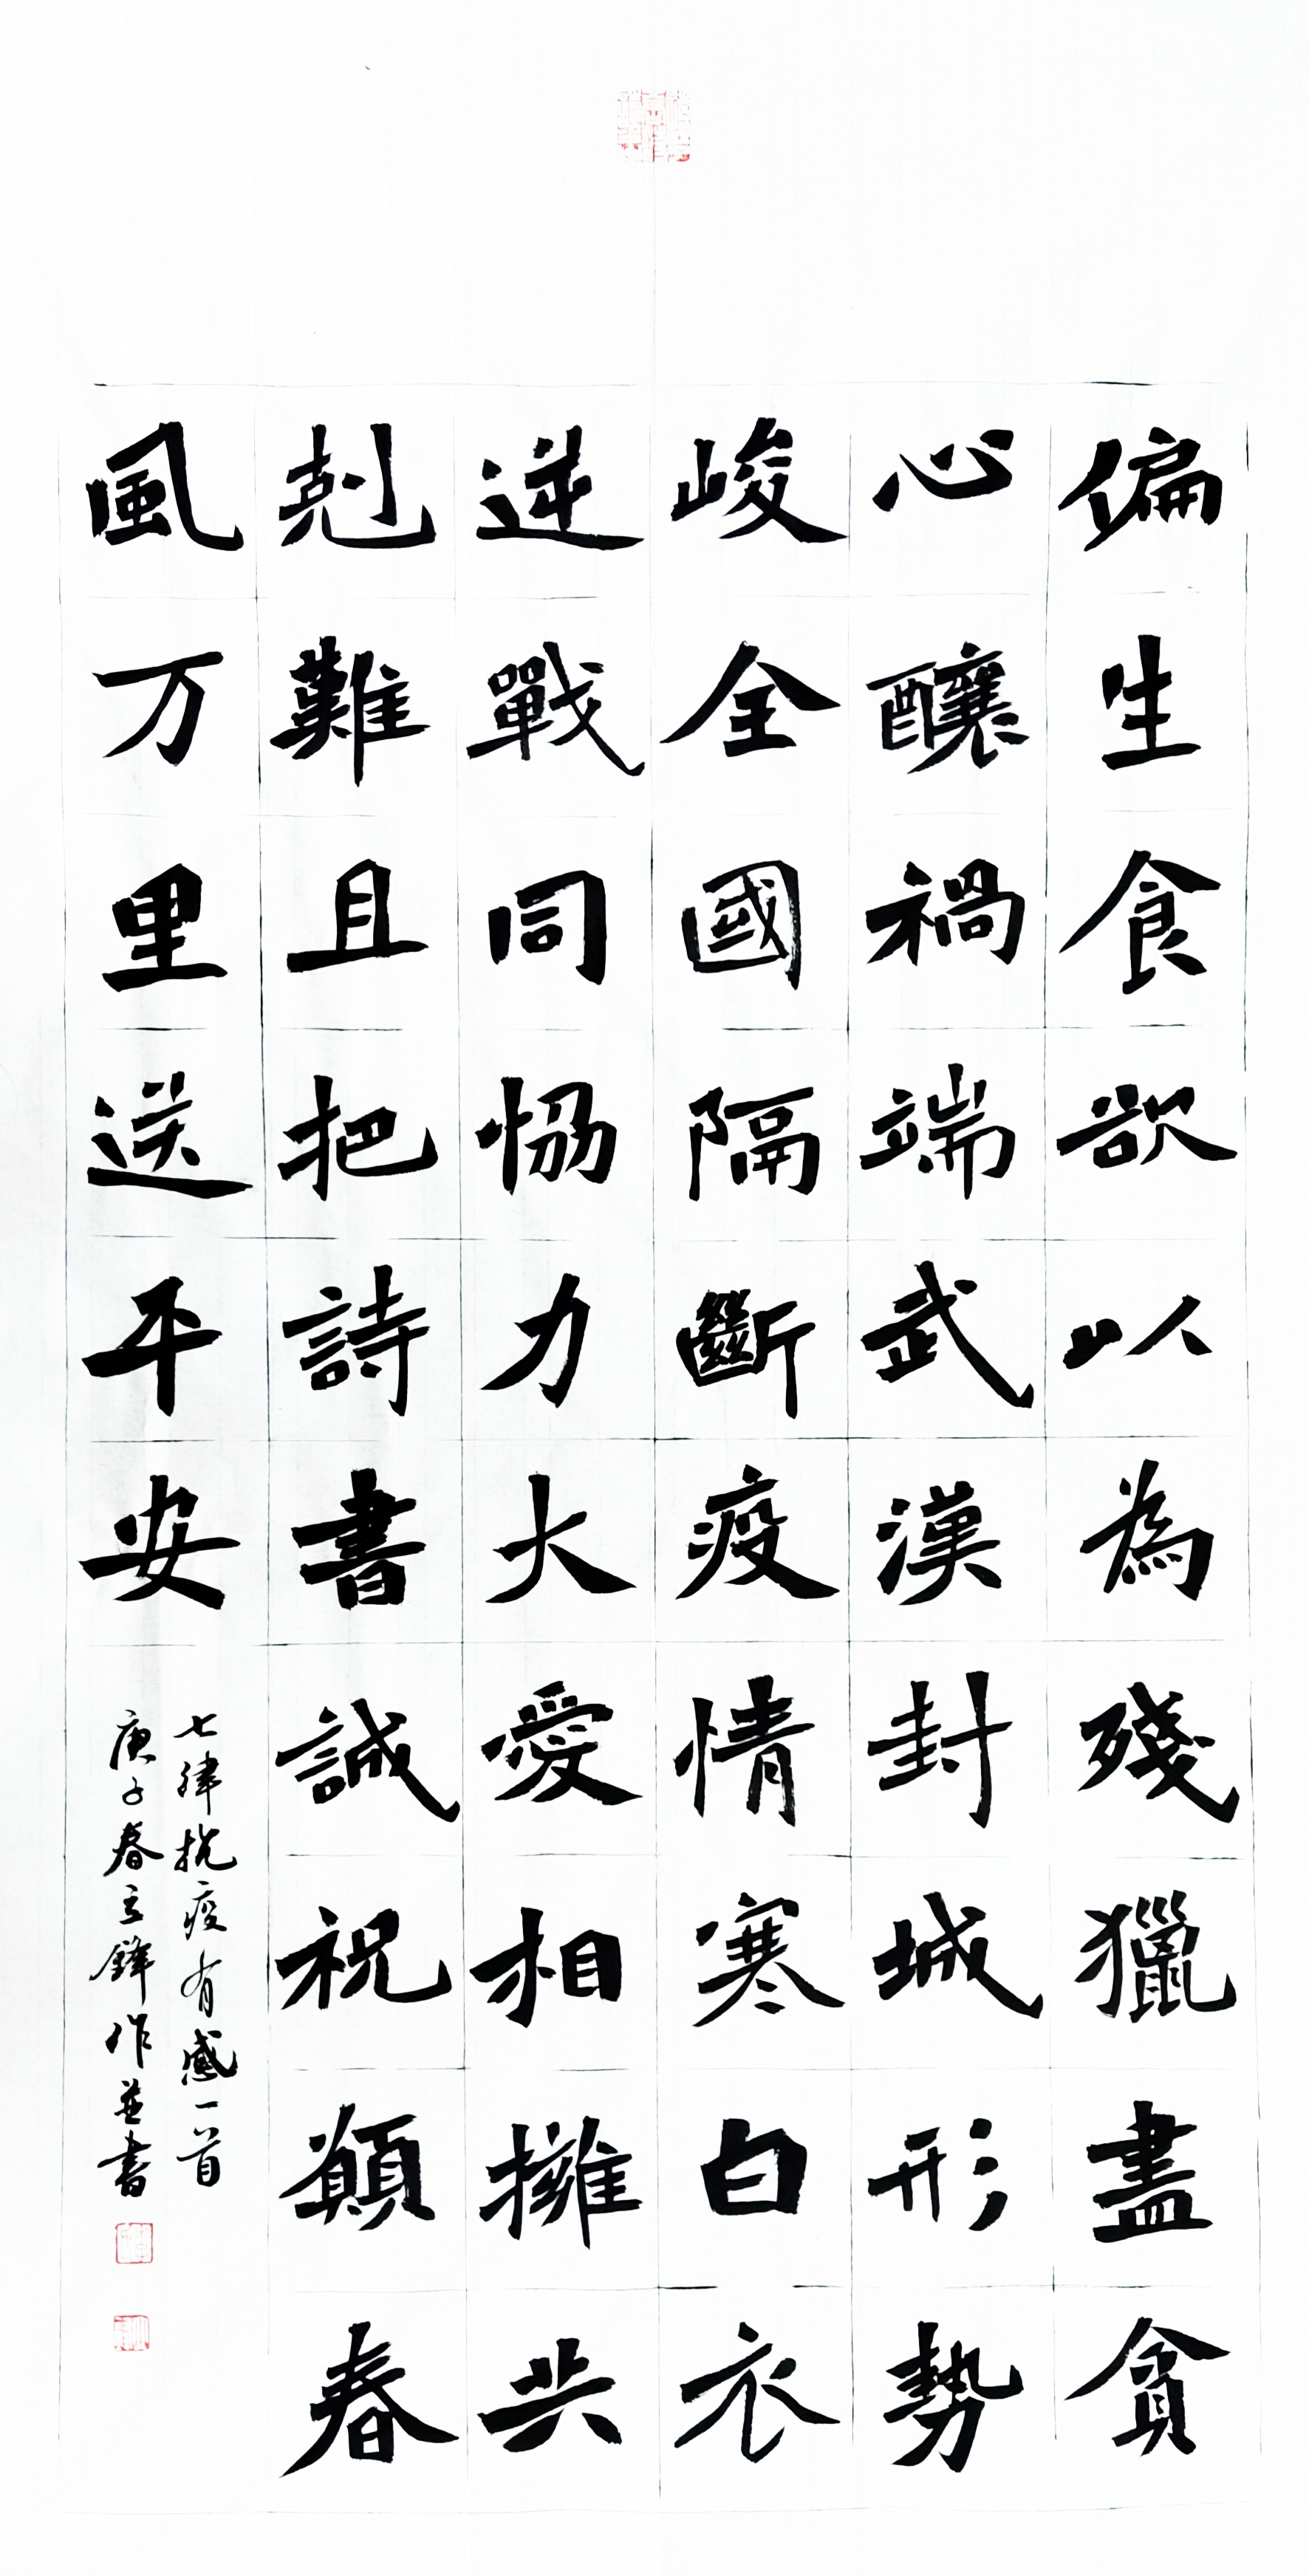 偏生食欲以為殘獵盡貪
心釀禍端武漢封城形勢
峻全國隔斷疫情寒白衣
逆戰同恊力大愛相擁共
剋難且把詩書誠祝願春
風万里送平安
七律抗疫有感一首
庚子春立鋒作並書